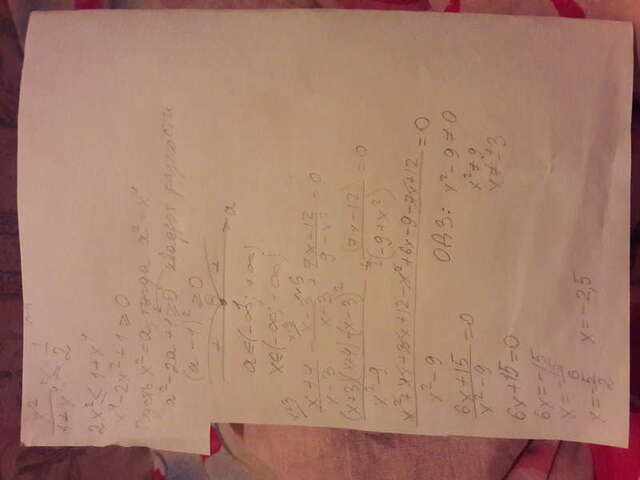 x² / 1+x⁴ ≤ 1/2
2x² ≤ 1+x⁴
x⁴-2x²+1 ≥ 0
Пусть x²=a, тогда a²=x⁴
a²-2a+1 ≥ 0 квадрат разности
(a-1)² ≥ 0
+ + a
1
a∈(-∞; +∞)
x∈(-∞; -∞)
x+4 / x-3 - x-3 / x+3 + 7x-12 / 9-x² = 0
(x+3)(x+4)-(x-3)² / x²-9 + (7x-12) / -(-9+x²) = 0
x²+4x+3x+12-x²+6x-9-7x+12 / x²-9 = 0
ОДЗ: x²-9≠0
6x+15 / x²-9 = 0
x²≠9
x≠±3
6x+15=0
6x=-15
x=-15/6
x=-5/2 x=-2,5